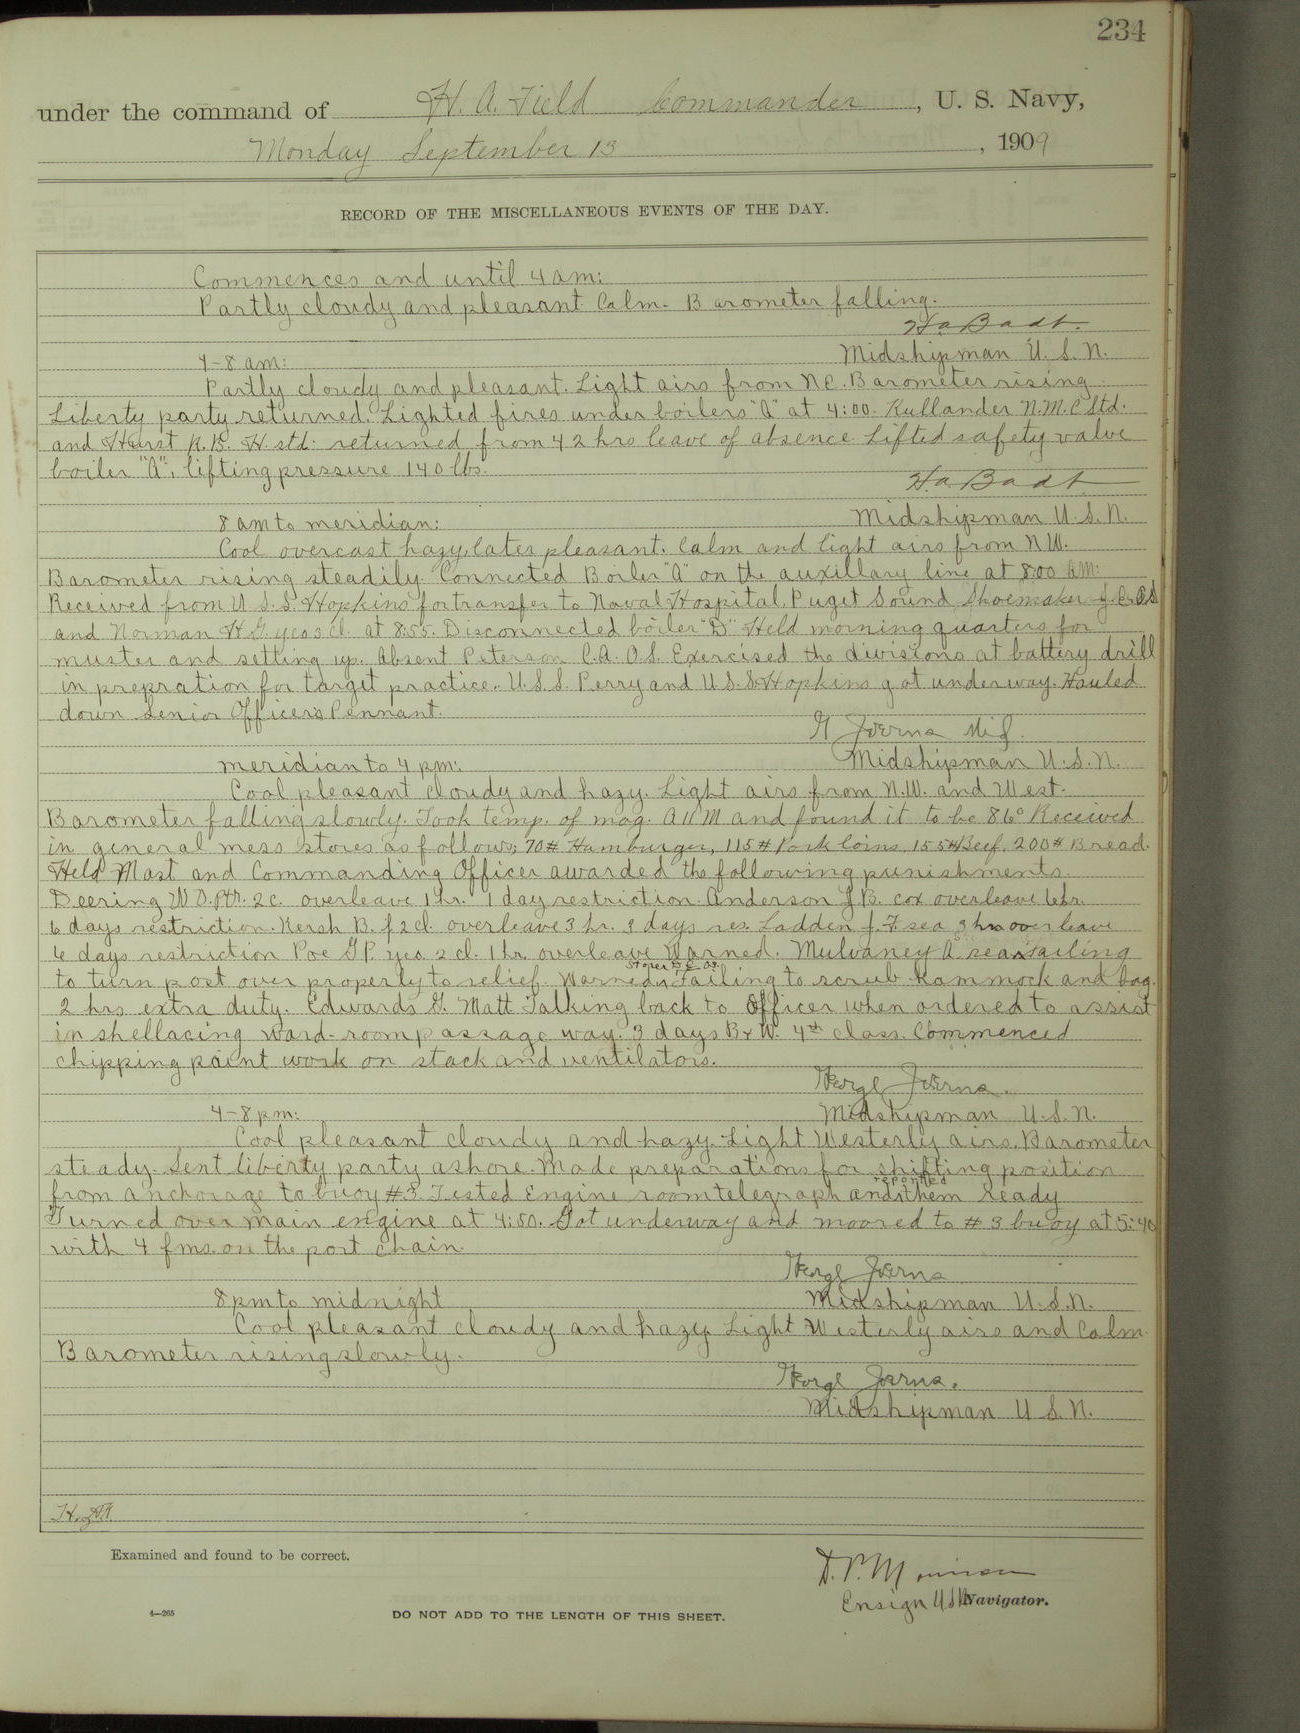 234
under the command of H. A. Field Commander, U. S. Navy,
Monday September 13, 1909
RECORD OF THE MISCELLANEOUS EVENTS OF THE DAY.
Commences and until 4 am:
Partly cloudy and pleasant Calm. Barometer falling.
H. a. Badt.
Midshipman U. S. N.
4-8 am:
Partly cloudy and pleasant. Light airs from N.E. Barometer rising
Liberty party returned. Lighted fires under boilers "A" at 4:00. Kullander N.M.C Std.
and Hurst R.B. H std. returned from 42 hrs leave of absence Lifted safety valve
boiler "A", lifting pressure 140 lbs.
H. a. Badt
Midshipman U. S. N.
8 am to meridian:
Cool overcast hazy, later pleasant. Calm and light airs from N.W.
Barometer rising steadily. Connected Boiler "A" on the auxillary line at 8:00 AM:
Received from U.S.S. Hopkins for transfer to Naval Hospital, Puget Sound Shoemaker J.C. O.S
and Norman H.G. yeo 3 cl. at 8:55. Disconnected boiler "D" Held morning quarters for
muster and setting up. Absent Peterson C.A. O.S. Exercised the divisions at battery drill
in prepration for target practice. U.S.S. Perry and U.S.S. Hopkins got underway. Hauled
down Senior Officers Pennant.
G Joerns
Midshipman U.S.N.
meridian to 4 pm:
Cool pleasant cloudy and hazy. Light airs from N.W. and West.
Barometer falling slowly. Took temp. of mag. A 11 M and found it to be 86° Received
in general mess stores as follows; 70# Hamburger, 115# Pork loins, 155# Beef, 200# Bread.
Held Mast and Commanding Officer awarded the following punishments.
Deering W.D. Ptr. 2 c. overleave 1 hr. 1 day restriction. Anderson J.B. cox overleave 6 hr.
6 days restriction. Kersh B. f 2 cl. overleave 3 hr. 3 days res. Ladden J.F sea 3 hr overleave
6 days restriction Poe G P. yeo 2 cl. 1 hr. overleave Warned. Mulvaney A sea failing
to turn post over properly to relief. Warned, Failing to scrub hammock and bag.
2 hrs extra duty. Edwards G. Matt Talking back to Officer when ordered to assist
in shellacing ward-room passage way. 3 days B & W. 4th class. Commenced
chipping paint work on stack and ventilators.
George Joerns.
Midshipman U.S.N.
4-8 pm:
Cool pleasant cloudy and hazy. Light Westerly airs. Barometer
steady. Sent liberty party ashore. Made preparations for shifting position
from anchorage to buoy #3. Tested Engine room telegraph and reported them ready
Turned over main engine at 4:50. Got underway and moored to #3 buoy at 5:40
with 4 fms. on the port chain.
George Joerns
Midshipman U.S.N.
8 pm to midnight
Cool pleasant cloudy and hazy Light Westerly airs and Calm.
Barometer rising slowly.
George Joerns.
Midshipman U.S.N.
Examined and found to be correct.
Ensign U.S.N. Navigator.
4—265
DO NOT ADD TO THE LENGTH OF THIS SHEET.